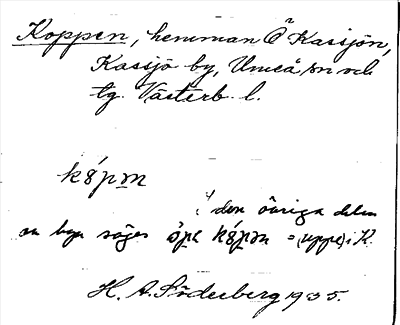 Koppen, hemman Å Kassjön,
Kassjö by, Umeå sn och
tg. Västerb. l.
kópm
i den övriga delen
av byn säges ópe kópm = (uppe) i K.
H. A. Söderberg 1935.